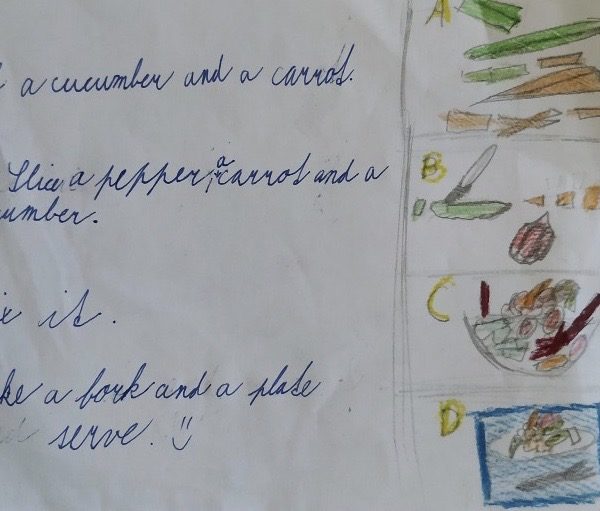 a cucumber and a carrot.
Slice a pepper, a carrot and a
umber.
it.
ke a fork and a plate
serve. :)
A
B
C
D